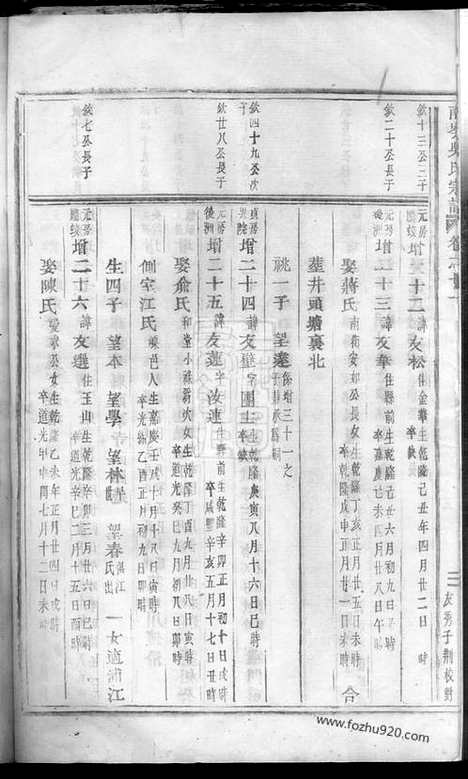 南岑吳氏宗譜 卷之十一
三 友秀子荆校對
欽十三公二子
元房 增二十二 諱友松 住金華 生乾隆己丑年四月廿二日 時
欽二十公長子
元房後洲 增二十三 諱友華 住縣前 生乾隆己 六月初九日子時 卒嘉慶己未四月廿八日午時
娶蔣氏 南街安 公長女 生乾隆丁亥正月廿五日未時 卒道光戊申正月廿一日未時 合
塟井頭塘裏北
祧一子 望 係增三十一之子
欽四十九公次子
貞房 增二十四 諱友 字 生乾隆庚寅八月十六日巳時
欽廿八公長子
元房後洲 增二十五 諱友蓮 字汝連 住縣前 生乾隆辛卯正月初十日戌時 卒咸豐辛亥五月十七日丑時
娶俞氏 和 小 次女 生乾隆丁酉九月廿八日亥時 卒道光癸巳九月初八日卯時
側室江氏 邑人 生嘉慶壬戌十月十一日寅時 卒光緒乙酉正月初九日卯時
生四子 望本 望學 望林 望春 俱江氏出 一女適浦江
欽七公長子
元房 增二十六 諱友 住玉山 生乾隆辛卯三月廿六日 時 卒道光辛巳二月十五日酉時
娶陳氏 公女 生乾隆乙未年正月廿四日戌時 卒道光甲申閏七月十二日未時
www.fozhu920.com